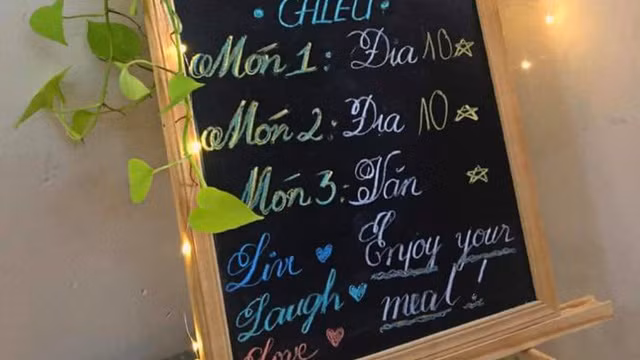 CHIỀU
Món 1: Địa 10
Món 2: Địa 10
Món 3: Văn
Live Enjoy your
Laugh meal!
Love